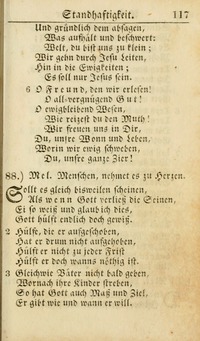 Standhaftigkeit. 117
Und gründlich dem absagen,
Was aufhält und beschwert:
Welt, du bist uns zu klein;
Wir gehn durch Jesu Leiten,
Hin in die Ewigkeiten;
Es soll nur Jesus sein.
6 O Freund, den wir erlesen!
O all-vergnügend Gut!
O ewigbleibend Wesen,
Wie reizest du den Muth!
Wir freuen uns in Dir,
Du, unsre Wonn und Leben,
Worin wir ewig schweben,
Du, unsre ganze Zier!
88.) Mel. Menschen, nehmet es zu Herzen.
Sollt es gleich bisweilen scheinen,
Als wenn Gott verließ die Seinen,
Ei so weiß und glaub ich dies,
Gott hülft endlich doch gewiß.
2 Hülfe, die er aufgeschoben,
Hat er drum nicht aufgehoben,
Hülft er nicht zu jeder Frist
Hülft er doch wanns nöthig ist.
3 Gleichwie Väter nicht bald geben,
Wornach ihre Kinder streben,
So hat Gott auch Maß und Ziel,
Er gibt wie und wann er will.